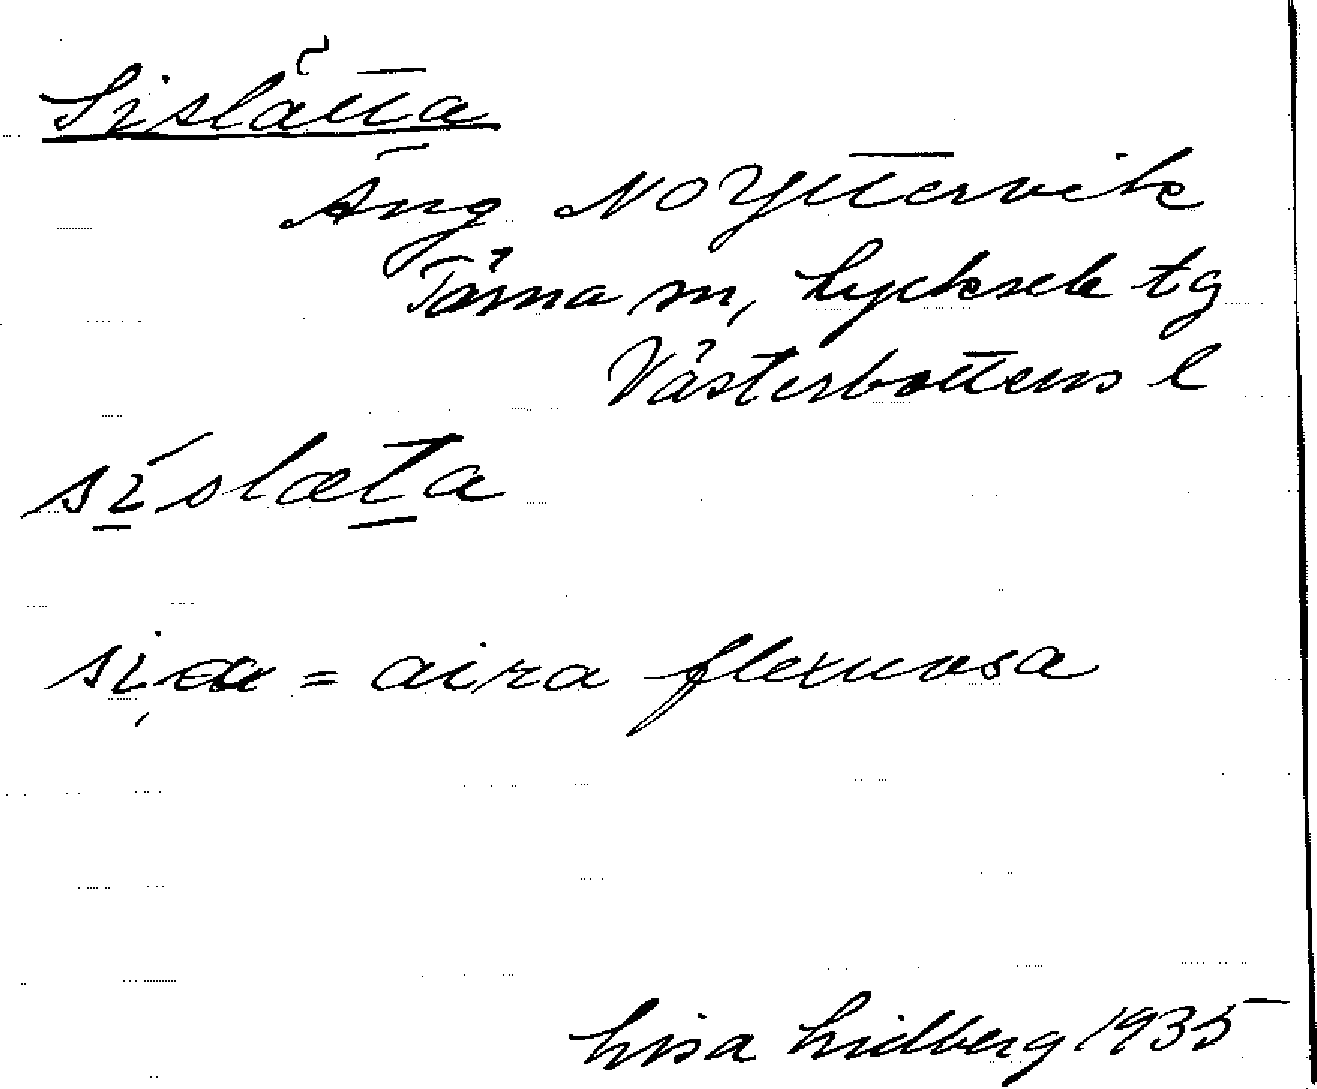 Sislätta
Äng NO Yttervik
Tärna sn, Lycksele tg
Västerbottens l
síslæta
= aira flexuosa
Lisa Lidberg 1935